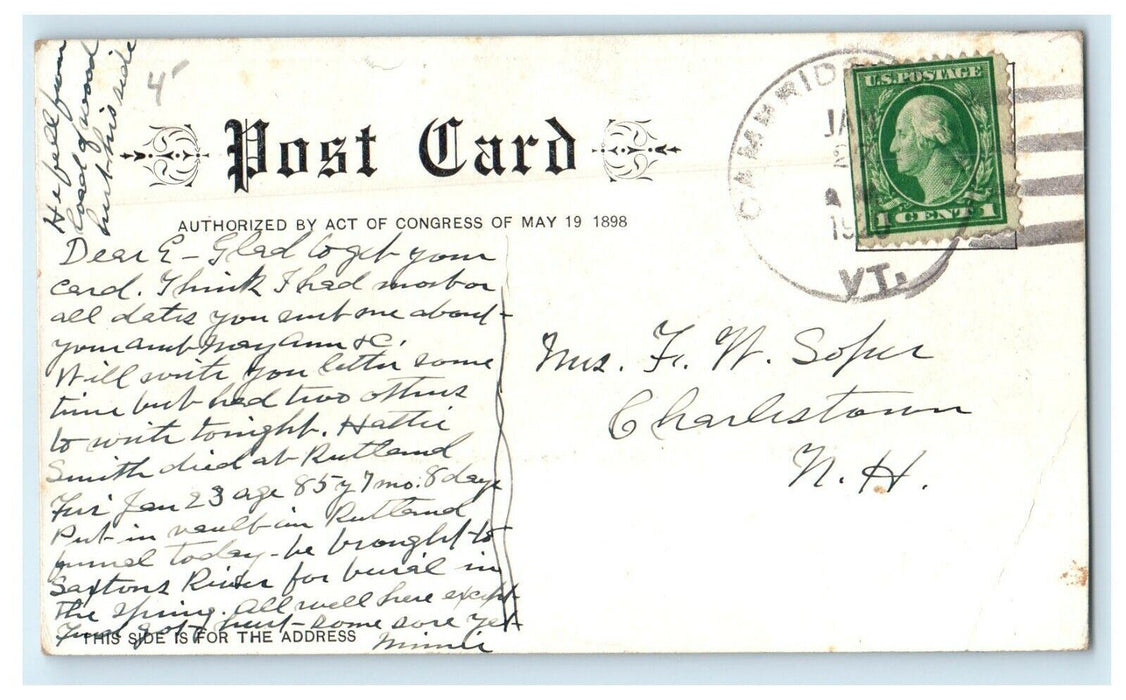 He fell from
load of wood
hurt his side
4
Post Card
AUTHORIZED BY ACT OF CONGRESS OF MAY 19 1898
CAMBRIDGE
JAN
A
VT.
U.S. POSTAGE
1 CENT 1
Dear E - Glad to get your
card. Think I had most or
all dates you sent me about
your aunt Mary Ann & C.
Will write you letter some
time but had two others
to write tonight. Hattie
Smith died at Rutland
Fri Jan 23 age 85 y 7 mo. 8 days
Put in vault in Rutland
funeral today - be brought to
Saxtons River for burial in
the spring. All well here except
Fred got hurt - some sore yet
Minnie
THIS SIDE IS FOR THE ADDRESS
Mrs. F. W. Soper
Charlestown
N. H.